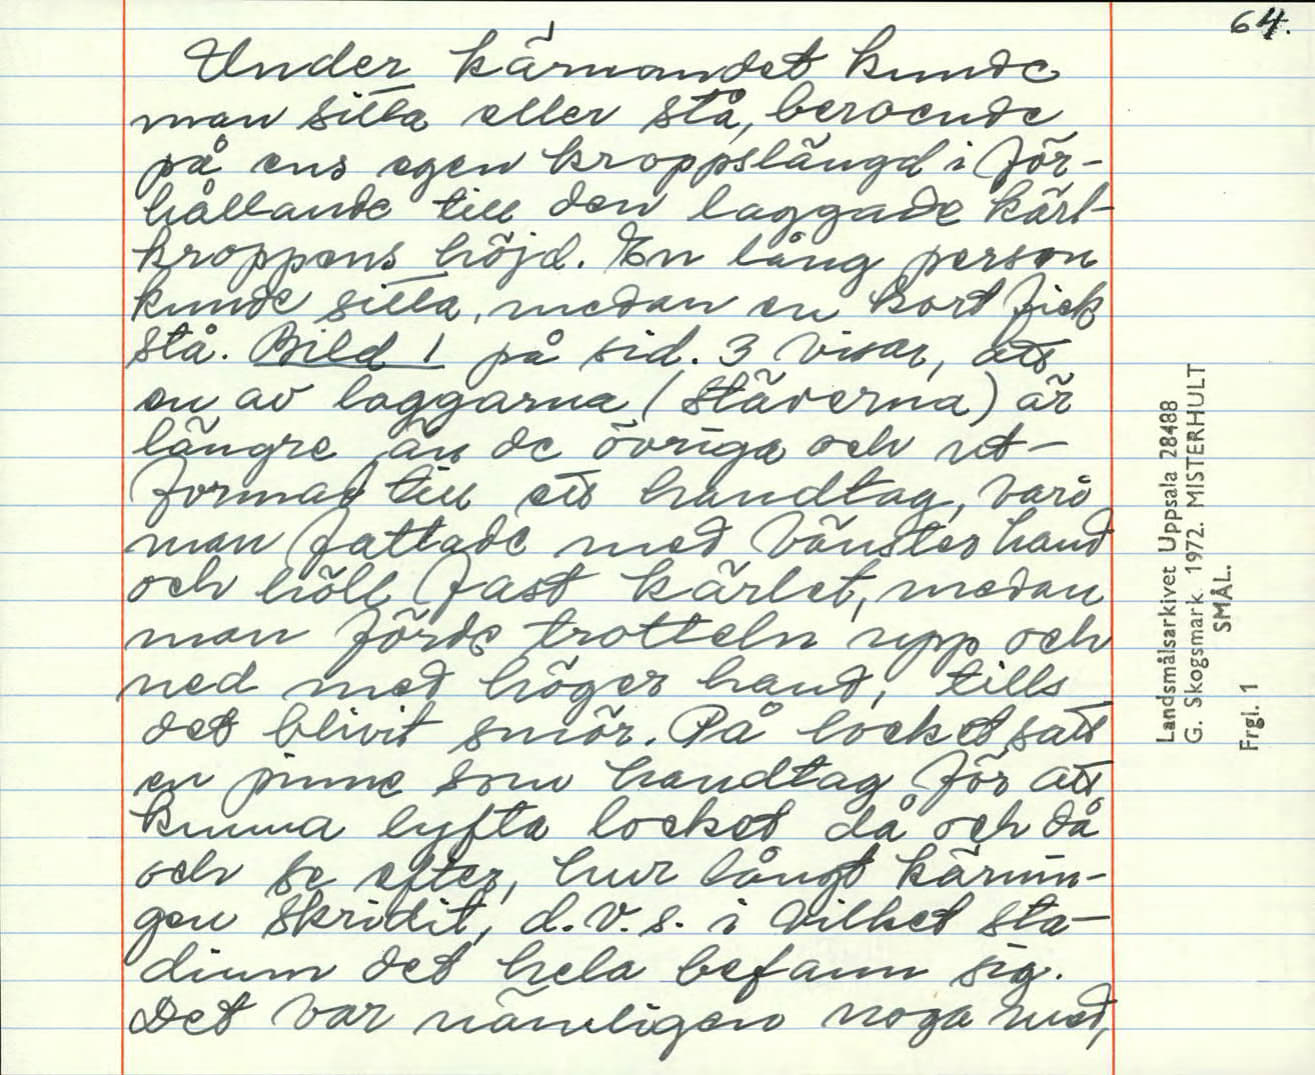 64.
Under kärnandet kunde
man sitta eller stå, beroende
på ens egen kroppslängd i för-
hållande till den laggade kärl-
kroppens höjd. En lång person
kunde sitta, medan en kort fick
stå. Bild 1 på sid. 3 visar, att
en av laggarna (stäverna) är
längre än de övriga och ut-
formad till ett handtag, vari
man fattade med vänster hand
och höll fast kärlet, medan
man förde trotteln upp och
ned med höger hand, tills
det blivit smör. På locket satt
en pinne som handtag för att
kunna lyfta locket då och då
och se efter, hur långt kärnin-
gen skridit, d.v.s. i vilket sta-
dium det hela befann sig.
Det var nämligen noga med,
Landsmålsarkivet Uppsala 28488
G. Skogsmark. 1972. MISTERHULT
SMÅL.
Frgl. 1